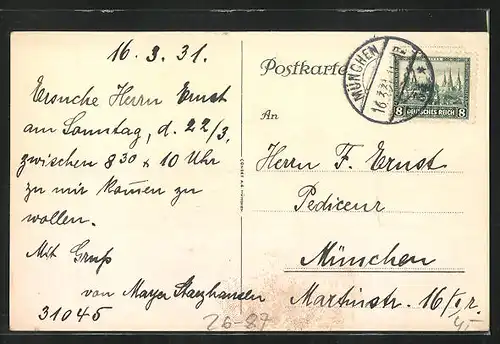 16. 3. 31.
Ersuche Herrn Ernst
am Sonntag, d. 22/3,
zwischen 8 30 + 10 Uhr
zu mir kommen zu
wollen.
Mit Gruß
von Mayer
31045
Postkarte
MÜNCHEN
16.3.31
8 DEUTSCHES REICH 8
An
Herrn F. Ernst
Pediceur
München
Martinstr. 16/I r.
26-87